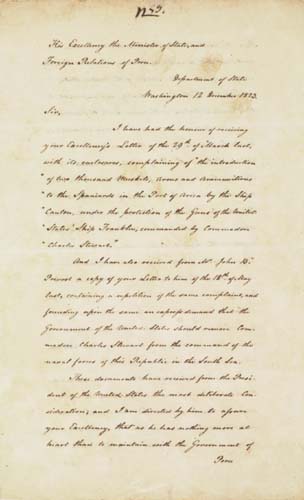 No 3.
His Excellency the Minister of State, and
Foreign Relations of Peru.
Department of State
Washington 12 December 1823.
Sir,
I have had the honour of receiving
your Excellency's Letter of the 29th of March last,
with its enclosures, complaining of the introduction
"of two thousand Muskets, Arms and Ammunitions
"to the Spaniards in the Port of Arica by the Ship
"Canton, under the protection of the Guns of the United
"States' Ship Franklin, commanded by Commodore
"Charles Stewart."
And I have also received from Mr. John B.
Prevost a copy of your Letter to him of the 18th of May
last, containing a repetition of the same complaint, and
founding upon the same an express demand that the
Government of the United States should remove Com-
modore Charles Stewart from the command of the
naval forces of this Republic in the South Sea.
These documents have received from the Presi-
dent of the United States the most deliberate Con-
sideration; and I am directed by him to assure
your Excellency, that as he has nothing more at
heart than to maintain with the Government of
Peru